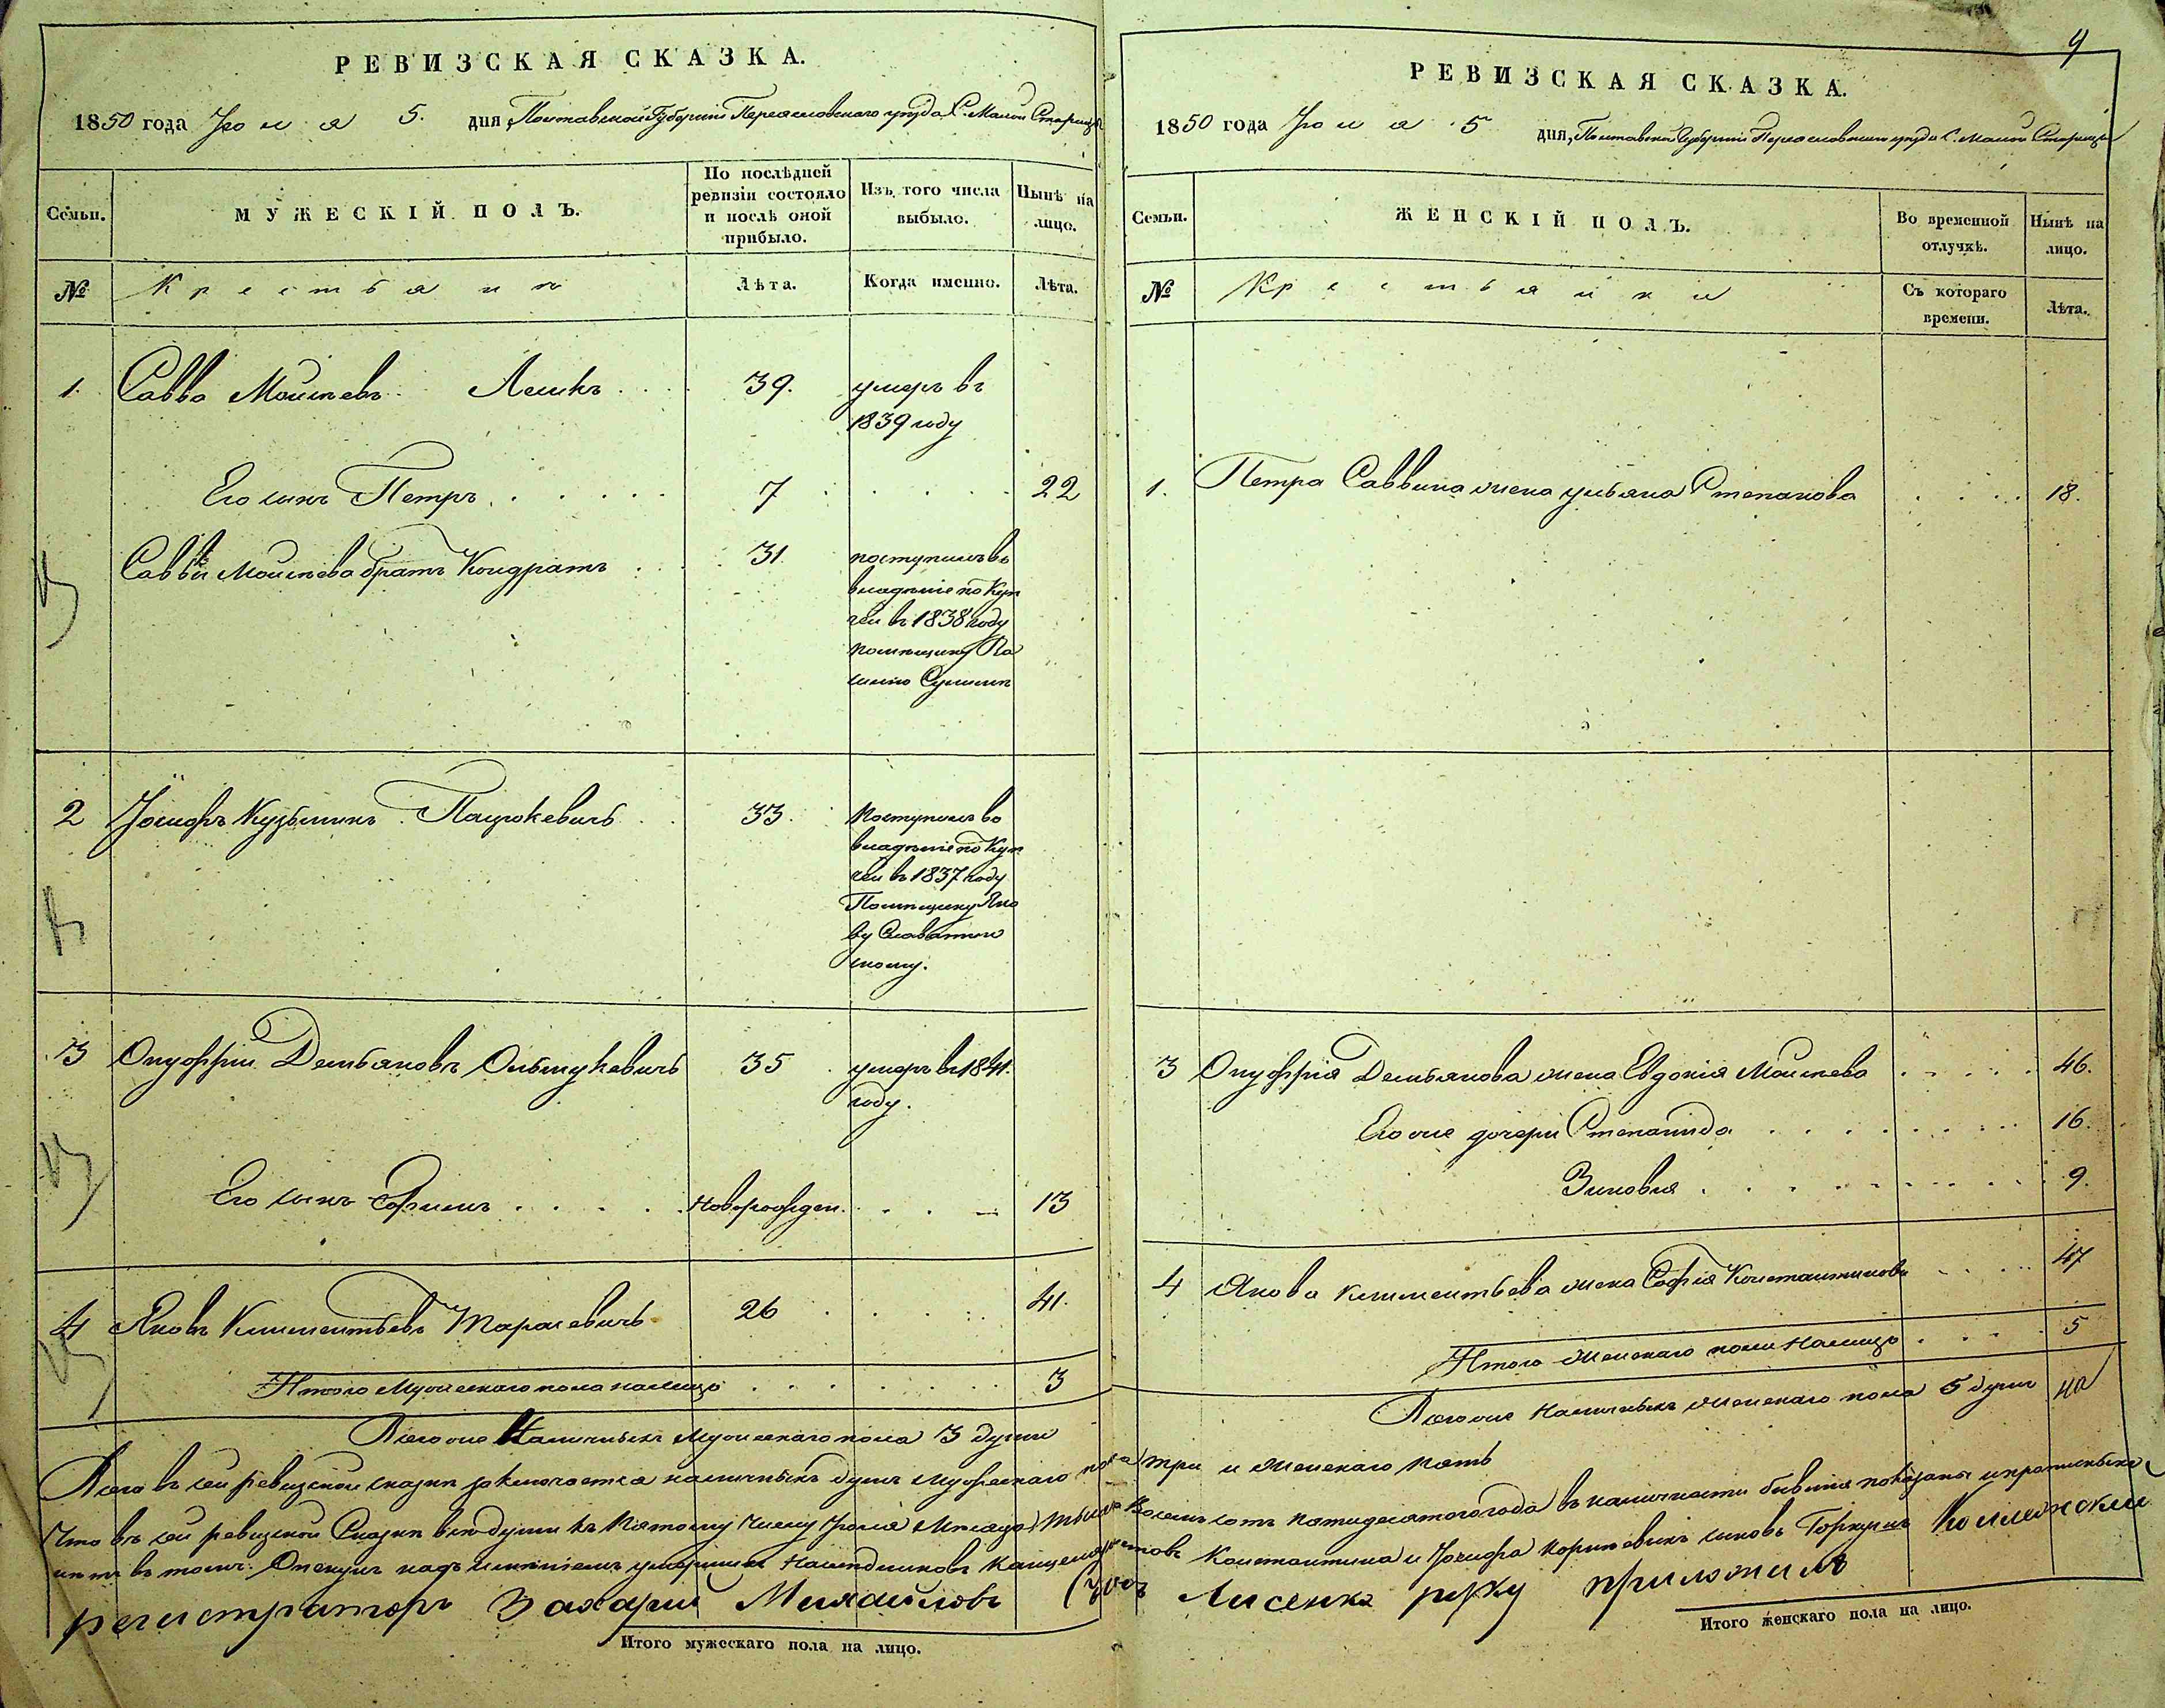 РЕВИЗСКАЯ СКАЗКА.
1850 года Июля 5. дня, Полтавской Губерніи Переяславскаго уезда С. Малой Старицы
Семьи.
МУЖЕСКІЙ ПОЛЪ.
По послѣдней ревизіи состояло и послѣ оной прибыло.
Изъ того числа выбыло.
Нынѣ на лицо.
№
Крестьянъ
Лѣта.
Когда именно.
Лѣта.
1. Савва Моисеевъ Лешкъ 39. умеръ въ
1839 году
Его сынъ Петръ 7 22
Саввы Моисеева братъ Кондратъ 31. поступилъ во
владѣніе по Куп
чей въ 1838 году
помѣщику
2 Іосифъ Кузьминъ Пацукевичъ 33. поступилъ во
владѣніе по Куп
чей въ 1837 году
Помѣщику Яко
ву
скому.
3 Онуфрій Демьяновъ 35 умеръ въ 1841.
году.
Его сынъ Ефимъ Новорожден. 13
4 Яковъ Климентьевъ Тарасевичъ 26 41.
Итого Мужескаго пола на лицо 3
Всего же Наличныхъ Мужескаго пола 3 души
Итого мужескаго пола на лицо.
9
РЕВИЗСКАЯ СКАЗКА.
1850 года Июля 5 дня, Полтавской Губерніи Переяславскаго уезда С. Малой Старицы
Семьи.
ЖЕНСКІЙ ПОЛЪ.
Во временной отлучкѣ.
Нынѣ на лицо.
№
Крестьянки
Съ котораго времени.
Лѣта.
1. Петра Саввина жена Ульяна Степанова 18.
3 Онуфрія Демьянова жена Евдокія Моисеева 46.
Его же дочери Степанида 16.
Зиновія 9.
4 Якова Климентьева жена Софія Константинова 47
Итого Женскаго пола на лицо 5
Всего же Наличныхъ Женскаго пола 5 душъ
Всего въ сей ревизской сказкѣ заключается наличныхъ душъ Мужескаго пола три и Женскаго пять
Что въ сей ревизской Сказкѣ всѣ души къ Пятому Числу Июля Мѣсяца тысяча Восемьсотъ пятидесятого года въ наличности бывшія показаны и прописныхъ
нѣтъ въ томъ: Опекунъ надъ имѣніемъ умершихъ Константина и Іосифа сыновъ Коллежскій
регистраторъ Захарій Михайловъ сынъ Лисенко руку приложилъ
Итого женскаго пола на лицо.